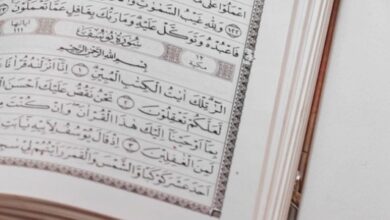 اعْمَلُوا عَلَىٰ
وَلِلَّهِ غَيْبُ السَّمَٰوَٰتِ
فَاعْبُدْهُ وَتَوَكَّلْ عَلَيْهِ وَمَا رَبُّكَ بِغَٰفِلٍ عَمَّا تَعْمَلُونَ ١٢٣
مكية ١٢ سُورَةُ يُوسُفَ آياتها ١١١
بِسْمِ اللَّهِ الرَّحْمَٰنِ الرَّحِيمِ
الٓر تِلْكَ ءَايَٰتُ الْكِتَٰبِ الْمُبِينِ ١ إِنَّآ أَنزَلْنَٰهُ
لَّعَلَّكُمْ تَعْقِلُونَ ٢ نَحْنُ نَقُصُّ عَلَيْكَ أَحْسَنَ
بِمَآ أَوْحَيْنَآ إِلَيْكَ هَٰذَا الْقُرْءَانَ وَإِن كُنتَ
لَمِنَ الْغَٰفِلِينَ ٣ إِذْ قَالَ يُوسُفُ لِأَبِيهِ يَٰٓأَبَتِ
أَحَدَ عَشَرَ كَوْكَبًا وَالشَّمْسَ وَالْقَمَرَ رَأَيْتُهُمْ لِي